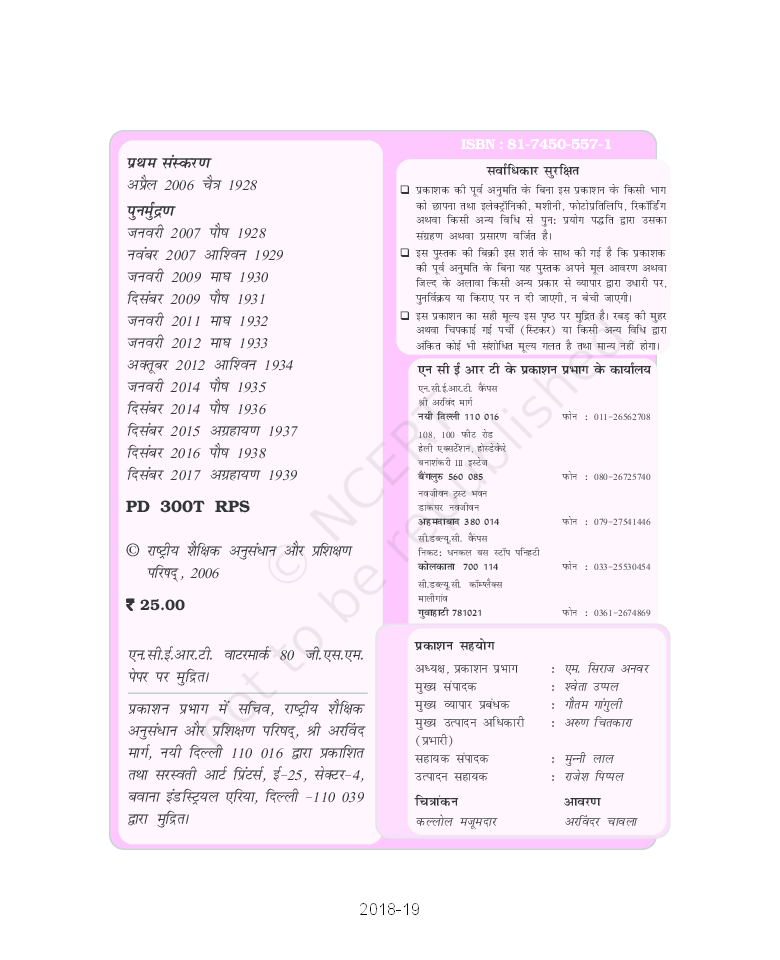 प्रथम संस्करण
अप्रैल 2006 चैत्र 1928
पुनर्मुद्रण
जनवरी 2007 पौष 1928
नवंबर 2007 आश्विन 1929
जनवरी 2009 माघ 1930
दिसंबर 2009 पौष 1931
जनवरी 2011 माघ 1932
जनवरी 2012 माघ 1933
अक्तूबर 2012 आश्विन 1934
जनवरी 2014 पौष 1935
दिसंबर 2014 पौष 1936
दिसंबर 2015 अग्रहायण 1937
दिसंबर 2016 पौष 1938
दिसंबर 2017 अग्रहायण 1939
PD 300T RPS
© राष्ट्रीय शैक्षिक अनुसंधान और प्रशिक्षण
परिषद् , 2006
₹ 25.00
एन.सी.ई.आर.टी. वाटरमार्क 80 जी.एस.एम.
पेपर पर मुद्रित।
प्रकाशन प्रभाग में सचिव, राष्ट्रीय शैक्षिक
अनुसंधान और प्रशिक्षण परिषद्, श्री अरविंद
मार्ग, नयी दिल्ली 110 016 द्वारा प्रकाशित
तथा सरस्वती आर्ट प्रिंटर्स, ई-25, सेक्टर-4,
बवाना इंडस्ट्रियल एरिया, दिल्ली -110 039
द्वारा मुद्रित।
ISBN : 81-7450-557-1
सर्वाधिकार सुरक्षित
❑ प्रकाशक की पूर्व अनुमति के बिना इस प्रकाशन के किसी भाग
को छापना तथा इलेक्ट्रॉनिकी, मशीनी, फोटोप्रतिलिपि, रिकॉर्डिंग
अथवा किसी अन्य विधि से पुन: प्रयोग पद्धति द्वारा उसका
संग्रहण अथवा प्रसारण वर्जित है।
❑ इस पुस्तक की बिक्री इस शर्त के साथ की गई है कि प्रकाशक
की पूर्व अनुमति के बिना यह पुस्तक अपने मूल आवरण अथवा
जिल्द के अलावा किसी अन्य प्रकार से व्यापार द्वारा उधारी पर,
पुनर्विक्रय या किराए पर न दी जाएगी, न बेची जाएगी।
❑ इस प्रकाशन का सही मूल्य इस पृष्ठ पर मुद्रित है। रबड़ की मुहर
अथवा चिपकाई गई पर्ची (स्टिकर) या किसी अन्य विधि द्वारा
अंकित कोई भी संशोधित मूल्य गलत है तथा मान्य नहीं होगा।
एन सी ई आर टी के प्रकाशन प्रभाग के कार्यालय
एन.सी.ई.आर.टी. कैंपस
श्री अरविंद मार्ग
नयी दिल्ली 110 016 फोन : 011-26562708
108, 100 फीट रोड
हेली एक्सटेंशन, होस्डेकेरे
बनाशंकरी III इस्टेज
बैंगलुरु 560 085 फोन : 080-26725740
नवजीवन ट्रस्ट भवन
डाकघर नवजीवन
अहमदाबाद 380 014 फोन : 079-27541446
सी.डब्ल्यू.सी. कैंपस
निकट: धनकल बस स्टॉप पनिहटी
कोलकाता 700 114 फोन : 033-25530454
सी.डब्ल्यू.सी. कॉम्प्लैक्स
मालीगांव
गुवाहाटी 781021 फोन : 0361-2674869
प्रकाशन सहयोग
अध्यक्ष, प्रकाशन प्रभाग : एम. सिराज अनवर
मुख्य संपादक : श्वेता उप्पल
मुख्य व्यापार प्रबंधक : गौतम गांगुली
मुख्य उत्पादन अधिकारी : अरुण चितकारा
(प्रभारी)
सहायक संपादक : मुन्नी लाल
उत्पादन सहायक : राजेश पिप्पल
चित्रांकन आवरण
कल्लोल मजूमदार अरविंदर चावला
© NCERT
not to be republished
2018-19